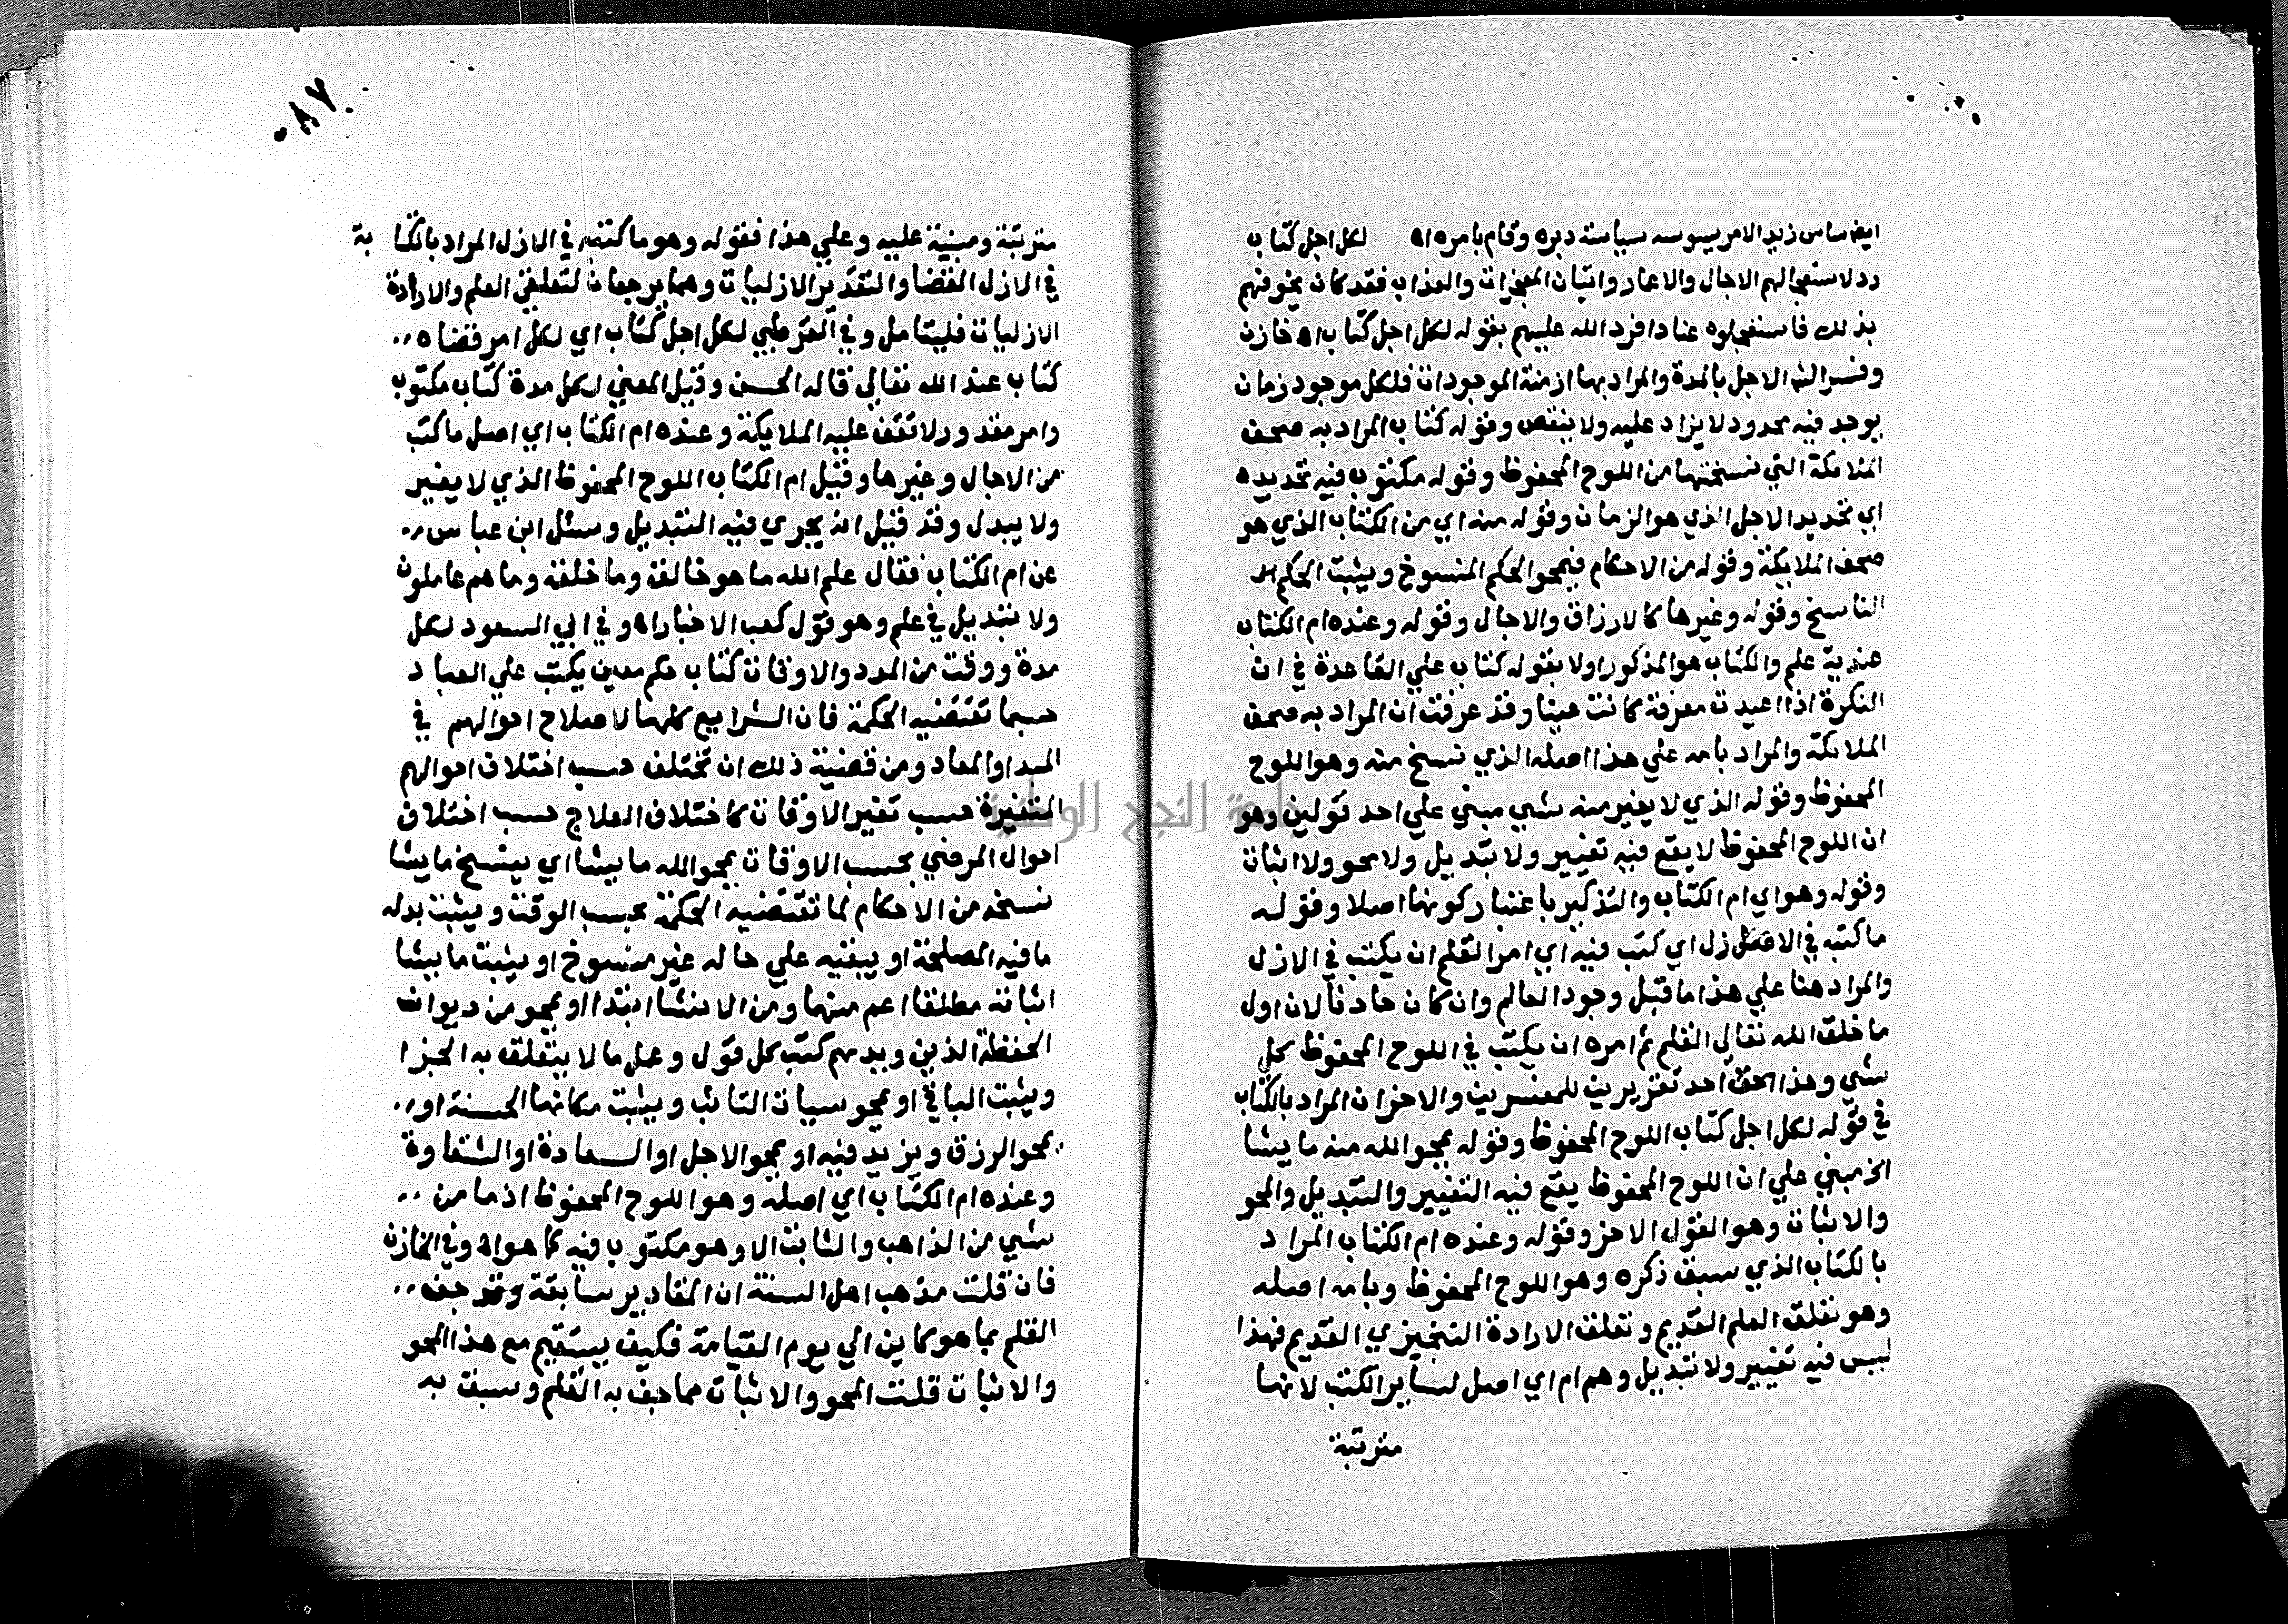 ايضا ساس زيد الامر يسوسه سياسة دبره وقام بامره اه لكل اجل كتاب
رد لاستعجالهم الاجال والاعمار واتيان المعجزات والعذاب فقد كان يخوفهم
بذلك فاستعجلوه عنادا فرد الله عليهم بقوله لكل اجل كتاب اه خازن
وفسر الش الاجل بالمدة والمراد بها ازمنة الموجودات فلكل موجود زمان
يوجد فيه محدود لا يزاد عليه ولا ينقص وقوله كتاب المراد به صحف
الملائكة التي نسختها من اللوح المحفوظ وقوله مكتوب فيه تحديده
اي تحديد الاجل الذي هو الزمان وقوله منه اي من الكتاب الذي هو
صحف الملايكة وقوله من الاحكام فيمحو الحكم المنسوخ ويثبت الحكم
الناسخ وقوله وغيرها كالارزاق والاجال وقوله وعنده ام الكتاب
عندية علم والكتاب هو المذكور اولا بقوله كتاب علي القاعدة في ان
النكرة اذا اعيدت معرفة كانت عينا وقد عرفت ان المراد به صحف
الملائكة والمراد بامه علي هذا اصله الذي نسخ منه وهو اللوح
المحفوظ وقوله الذي لا يغير منه شي مبني علي احد قولين وهو
ان اللوح المحفوظ لا يقع فيه تغيير ولا تبديل ولا محو ولا اثبات
وقوله وهو اي ام الكتاب والتذكير باعتبار كونها اصلا وقوله
ما كتبه في الازل اي كتب فيه اي امر القلم ان يكتب في الازل
والمراد هنا علي هذا ما قبل وجود العالم وان كان حادثا لان اول
ما خلق الله تعالي القلم ثم امره ان يكتب في اللوح المحفوظ كل
شي وهذا احد تقريرين للمفسرين والاخر ان المراد بالكتاب
في قوله لكل اجل كتاب اللوح المحفوظ وقوله يمحو الله منه ما يشا
الخ مبني علي ان اللوح المحفوظ يقع فيه التغيير والتبديل والمحو
والاثبات وهو القول الاخر وقوله وعنده ام الكتاب المراد
بالكتاب الذي سبق ذكره وهو اللوح المحفوظ وبامه اصله
وهو تعلق العلم القديم وتعلق الارادة التنجيزي القديم فهذا
ليس فيه تغيير ولا تبديل وهم ام اي اصل لساير الكتب لانها
مترتبة
٨٧
مترتبة ومبنية عليه وعلي هذا فقوله وهو ما كتبه في الازل المراد بالكتابة
في الازل القضا والتقدير الازليات وهما يرجعان لتعلقي العلم والارادة
الازليات فليتامل وفي القرطبي لكل اجل كتاب اي لكل امر قضاه
كتاب عند الله تعالي قاله الحسن وقيل المعني لكل مدة كتاب مكتوب
وامر مقدور لا تقف عليه الملايكة وعنده ام الكتاب اي اصل ما كتب
من الاجال وغيرها وقيل ام الكتاب اللوح المحفوظ الذي لا يغير
ولا يبدل وقد قيل انه يجري فيه التبديل وسئل ابن عباس
عن ام الكتاب فقال علم الله ما هو خالقه وما خلقه وما هم عاملون
ولا تبديل في علمه وهو قول كعب الاخبار اه وفي ابي السعود لكل
مدة ووقت من المدد والاوقات كتاب حكم معين يكتب علي العباد
حسبما تقتضيه الحكمة فان الشرايع كلها لاصلاح احوالهم في
المبدا والمعاد ومن قضية ذلك ان تختلف حسب اختلاف احوالهم
المتغيرة حسب تغير الاوقات كاختلاف العلاج حسب اختلاف
احوال المرضي بحسب الاوقات يمحو الله ما يشا اي ينسخ ما يشا
نسخه من الاحكام لما تقتضيه الحكمة بحسب الوقت ويثبت بدله
ما فيه المصلحة او يبقيه علي حاله غير منسوخ او يثبت ما يشا
اثباته مطلقا اعم منهما ومن الانشا ابتدا او يمحو من ديوان
الحفظة الذين ديدنهم كتب كل قول وعمل ما لا يتعلق به الجزا
ويثبت الباقي او يمحو سيات التائب ويثبت مكانها الحسنة او
يمحو الرزق ويزيد فيه او يمحو الاجل او السعادة او الشقاوة
وعنده ام الكتاب اي اصله وهو اللوح المحفوظ اذ ما من
شي من الذاهب والثابت الا وهو مكتوب فيه كما هو اه وفي الخازن
فان قلت مذهب اهل السنة ان المقادير سابقة وقد جف
القلم بما هو كاين الي يوم القيامة فكيف يستقيم مع هذا المحو
والاثبات قلت المحو والاثبات مما جف به القلم وسبق به
جامعة النجاح الوطنية